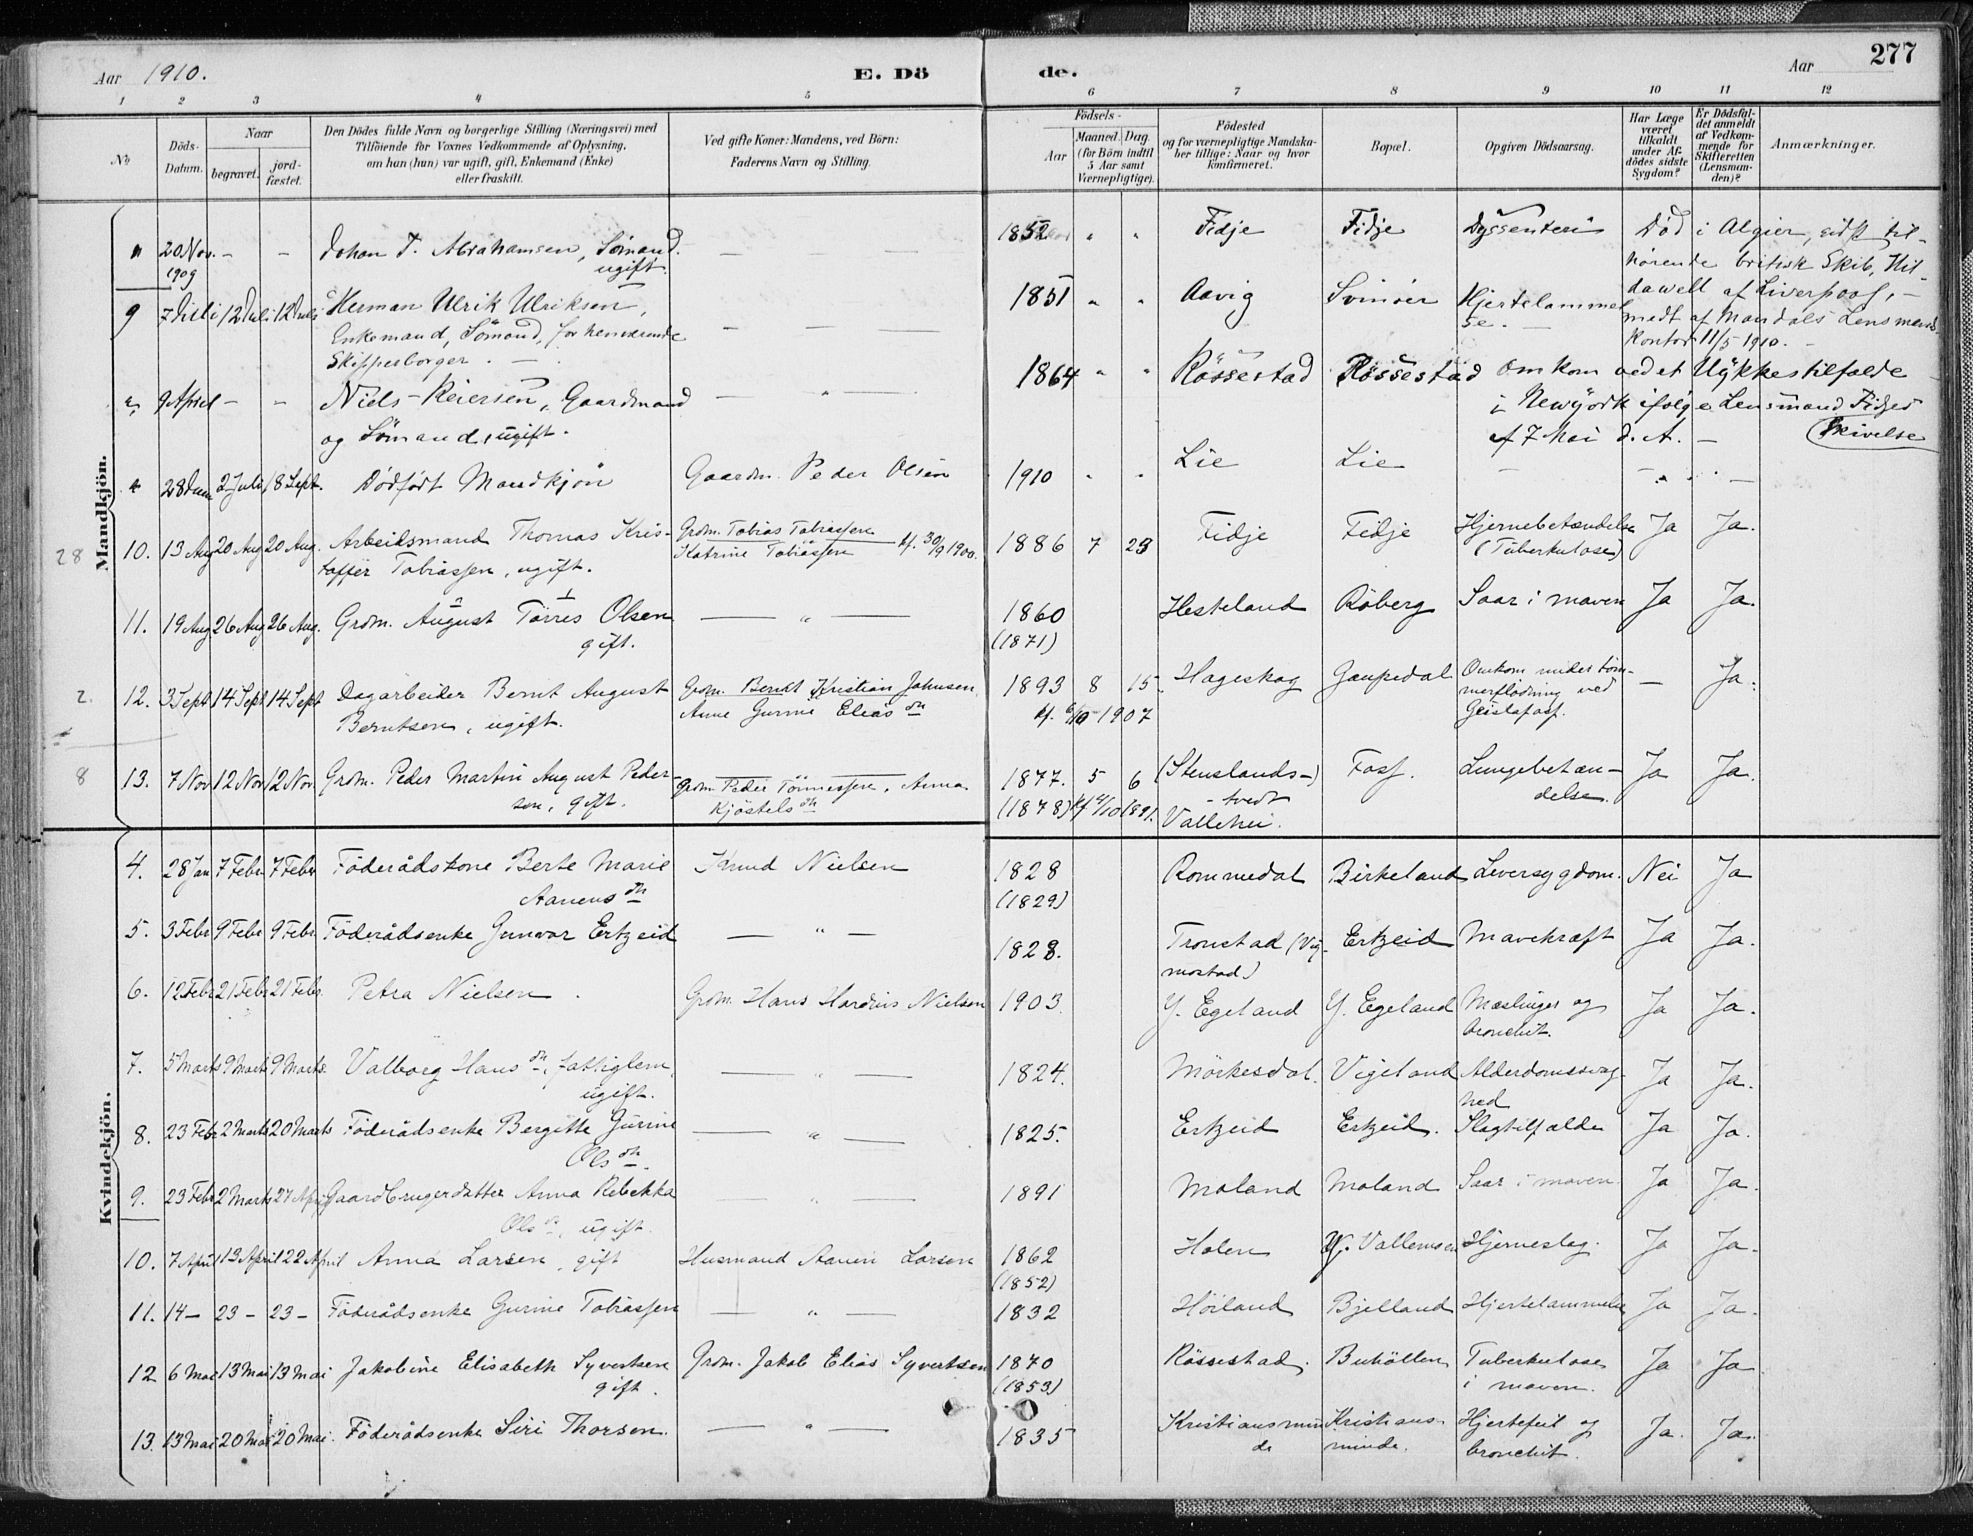 Aar 1910. E. Dö de. Aar 277
1 2 3 4 5 6 7 8 9 10 11 12
No
Döds-Datum.
Naar
begravet.
jord-fæstet.
Den Dödes fulde Navn og borgerlige Stilling (Næringsvei) med
Tilföiende for Voxnes Vedkommende af Oplysning,
om han (hun) var ugift, gift, Enkemand (Enke)
eller fraskilt.
Ved gifte Koner: Mandens, ved Börn:
Faderens Navn og Stilling.
Födsels-
Aar
Maaned. Dag.
(for Börn indtil
5 Aar samt
Værnepligtige).
Födested
og for værnepligtige Mandska-
ber tillige: Naar og hvor
konfirmeret.
Bopæl.
Opgiven Dödsaarsag.
Har Læge
været
tilkaldt
under Af-
dödes sidste
Sygdom?
Er Dödsfal-
det anmeldt
af Vedkom-
mende for
Skifteretten
(Lensman-
den)?
Anmærkninger.
Mandkjön.
" 20 Nov. - - Johan T. Abrahamsen, Sømand. — " — 1852 " " Fidje Fidje Dyssenteri Död i Algier, sidst til-
1909 ugift. hørende britisk Skib, Hil-
dawell af Liverpool, -
9 7 Juli 12 Juli 12 Juli Herman Ulrik Ulriksen, — " — 1851 " " Aavig Svinöer Hjertelammel-
Enkemand, Sömand, forhenværende se. — medt af Mandals Lensmands
Skipperborger. — Kontor 11/5 1910. -
" 9 April - - Niels Reiersen, Gaardmand — " — 1864 " " Rössestad Rössestad Omkom ved et Ulykkestilfælde
og Sömand, ugift. i Newyork ifølge Lensmand Fidjes
af 7 Mai d. A. — Skrivelse
" 28 Juni 2 Juli 18 Sept. Dödfödt Mandkjön Gaardm. Peder Olsen 1910 " " Lie Lie — —
28 10. 13 Aug 20 Aug 20 Aug. Arbeidsmand Thomas Kris- Grdm. Tobias Tobiassen 1886 7 23 Fidje Fidje Hjernebetændelse Ja Ja.
toffer Tobiassen, ugift. Katrine Tobiassen kf. 30/9 1900. (Tuberkulose)
11. 19 Aug 26 Aug 26 Aug. Grdm. August Törres Olsen — " — 1860 Hesteland Röberg Saar i maven Ja Ja.
gift. (1871)
2. 12. 3 Sept 14 Sept 14 Sept Dagarbeider Bernt August Grdm. Berent Kristian Johnsen, 1893 8 15 Hageskog Gaupedal Omkom under töm- — Ja.
Berntsen, ugift. Anne Gurine Eliasdtr kf. 6/10 1907 merflödning ved
Geislafoss.
8 13. 7 Nov 12 Nov 12 Nov. Grdm. Peder Martin August Peder- Grdm Peder Tönnessen, Anna 1877. 5 6 (Stenslands-) Foss. Lungebetæn- Ja Ja.
sen, gift. Kjöstelsdtr (1878) kf 4/10 1891. - tvedt delse.
Vallehei.
Kvindekjön.
4. 28 Jan 7 Febr 7 Febr Föderådskone Berte Marie Knud Nielsen 1828 Rommedal Birkeland Leversygdom. Nei Ja
Aanensdtr (1829)
5. 3 Febr 9 Febr 9 Febr. Föderådsenke Gunvor Ertzeid — " — 1828. Tronstad (Vig- Ertzeid Mavekræft Ja Ja.
mostad)
6. 12 Febr 21 Febr 21 Febr. Petra Nielsen. Grdm. Hans Hardius Nielsen 1903. Y. Egeland Y. Egeland Mæslinger og Ja Ja.
bronchit.
7. 5 Marts 9 Marts 9 Marts. Valborg Hansdtr, fattiglem, — " — 1824. Mörkesdal. Vigeland Alderdomssvag- Ja Ja.
ugift. hed
8. 23 Febr 2 Marts 20 Marts Föderådsenke Bergitte Gurine — " — 1825. Ertzeid Ertzeid. Slagtilfælde Ja Ja.
Olsdtr.
9. 23 Febr 2 Marts 27 April Gaardbrugerdatter Anna Rebekka — " — 1891 Moland Moland Saar i maven. Ja Ja.
Olsdtr, ugift.
10. 7 April 13 April 22 April Anna Larsen, gift Husmand Aanen Larsen 1862 Holen Y. Vallemoen Hjerneslag. Ja Ja.
(1852)
11. 14 - 23 - 23 - Föderådsenke Gurine Tobiassen — " — 1832 Höiland Bjelland Hjertelammelse Ja Ja.
12 6 Mai 13 Mai 13 Mai Jakobine Elisabeth Syvertsen Grdm. Jakob Elias Syvertsen 1870 Rössestad. Buhöllen Tuberkulose Ja Ja
gift. (1853) i maven.
13. 13 Mai 20 Mai 20 Mai. Föderådsenke Siri Thorsen. — " — 1835 Kristiansmin- Kristians- Hjertefeil og Ja. Ja.
de minde. bronchit.